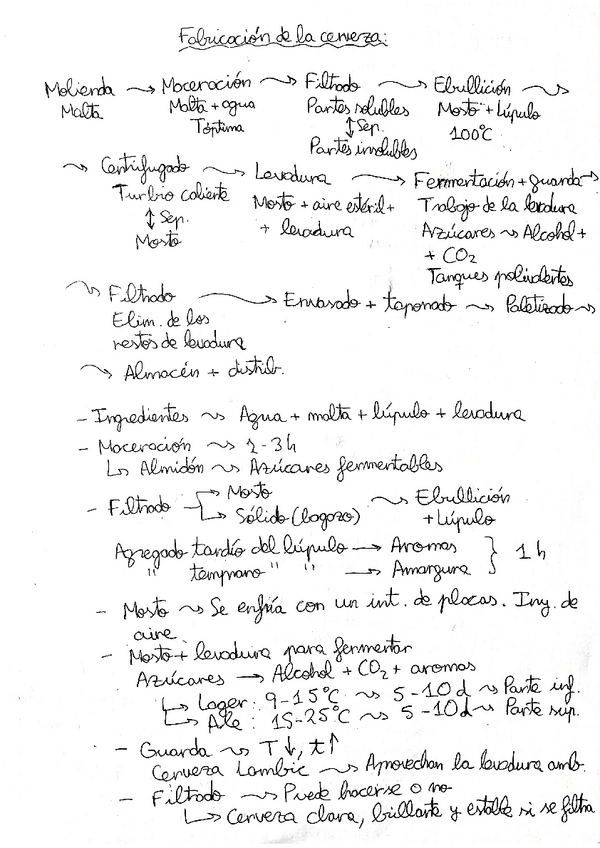 Fabricación de la cerveza:
Molienda → Maceración → Filtrado → Ebullición →
Malta Malta + agua Partes solubles Mosto + Lúpulo
Tóptima ↕ Sep. 100ºC
Partes insolubles
→ Centrifugado → Levadura → Fermentación + guarda →
Turbio caliente Mosto + aire estéril + Trabajo de la levadura
↕ Sep. + levadura Azúcares → Alcohol +
Mosto + CO2
Tanques polivalentes
→ Filtrado → Envasado + taponado → Paletizado →
Elim. de los
restos de levadura
→ Almacén + distrib.
- Ingredientes → Agua + malta + lúpulo + levadura
- Maceración → 2-3h
↳ Almidón → Azúcares fermentables
- Filtrado → Mosto → Ebullición
↳ Sólido (bagazo) + Lúpulo
Agregado tardío del lúpulo → Aromas } 1 h
" temprano " " → Amargura
- Mosto → Se enfría con un int. de placas. Iny. de
aire.
- Mosto + levadura para fermentar
Azúcares → Alcohol + CO2 + aromas
↳ Lager: 9-15ºC → 5-10 d → Parte inf.
↳ Ale: 15-25ºC → 5-10d → Parte sup.
- Guarda → T↓, t↑
Cerveza Lambic → Aprovechan la levadura amb.
- Filtrado → Puede hacerse o no
↳ Cerveza clara, brillante y estable si se filtra